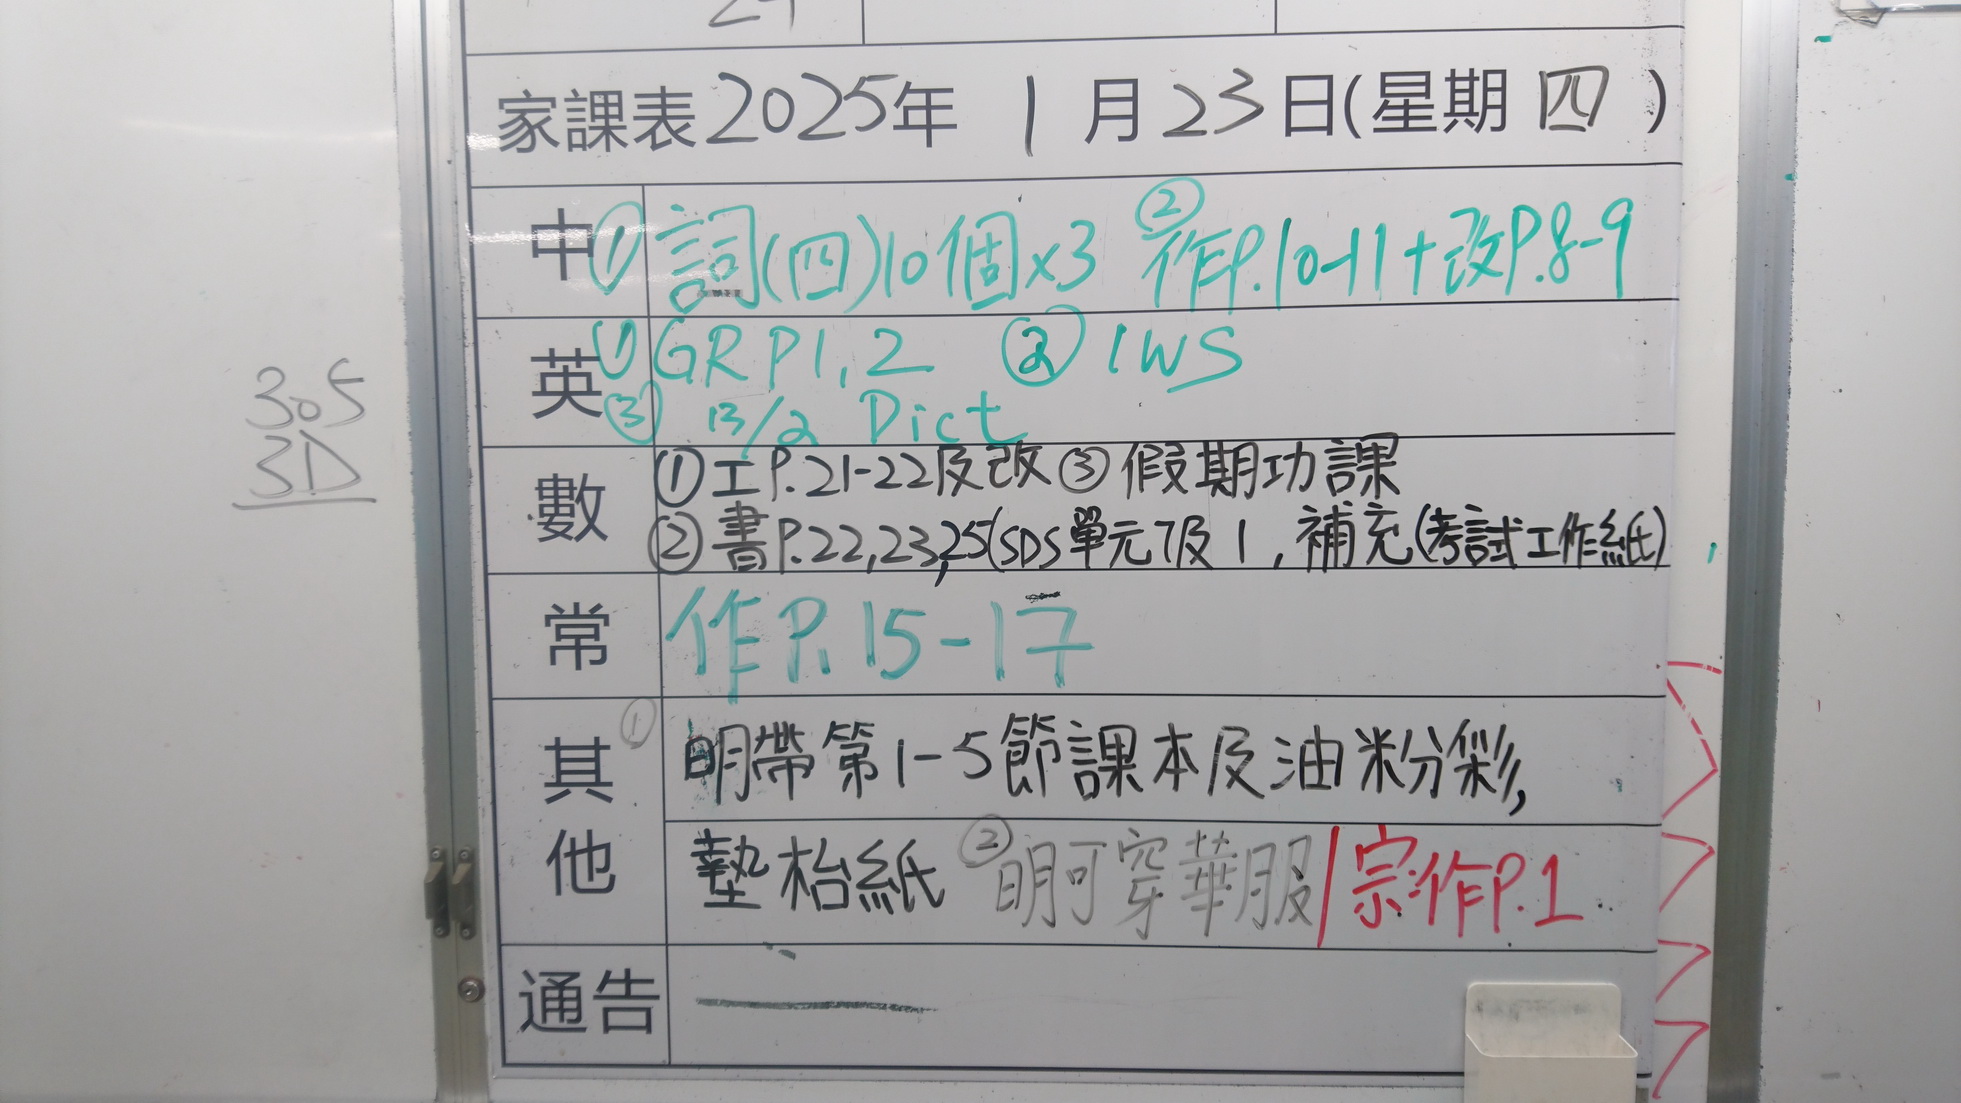 家課表2025年 1月23日(星期四)
中 ①詞(四)10個x3 ②作P.10-11+改P.8-9
英 ①GR P1,2 ②1WS
③ 13/2 Dict
數 ①工P.21-22及改③假期功課
②書P.22,23,25(SDS單元7及1,補充(考試工作紙)
常 作P.15-17
其他 ①明帶第1-5節課本及油粉彩,
墊枱紙 ②明可穿華服/宗:作P.1
通告
305
3D